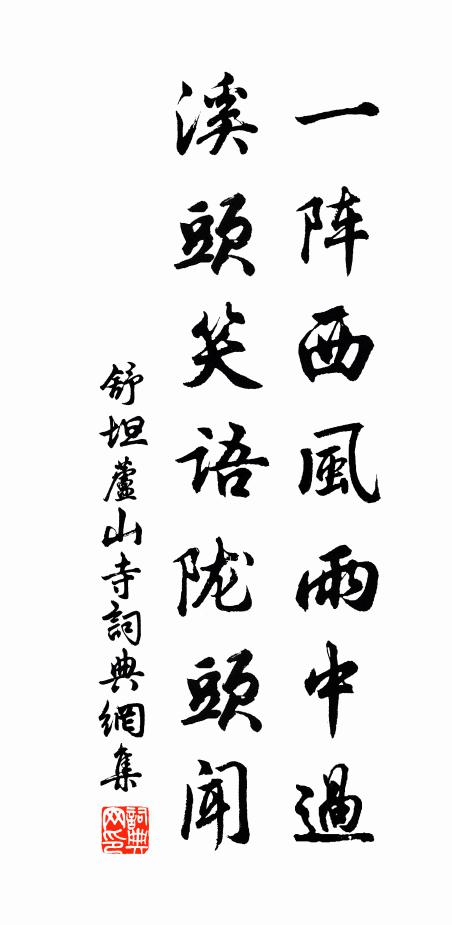 一阵西風雨中過
溪頭笑語陇頭闻
舒坦蘆山寺詞典網集
詞典网印